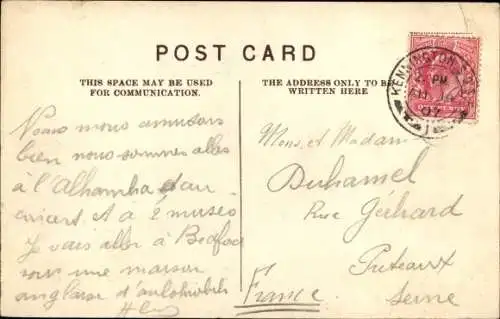 POST CARD
THIS SPACE MAY BE USED
FOR COMMUNICATION.
THE ADDRESS ONLY TO BE
WRITTEN HERE
KENNINGTON
PM
Nous nous amusons
bien nous sommes allés
à l'Alhambra et au
concert et à 2 museo
Je vais aller à Bedford
une maison
anglaise d'automobiles
Mons. et Madam
Duhamel
Rue Géihard
Puteaux
Seine
France